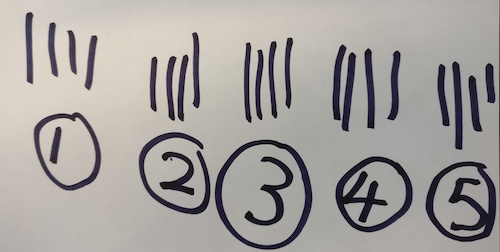 |||| |||| |||| |||| ||||
1 2 3 4 5